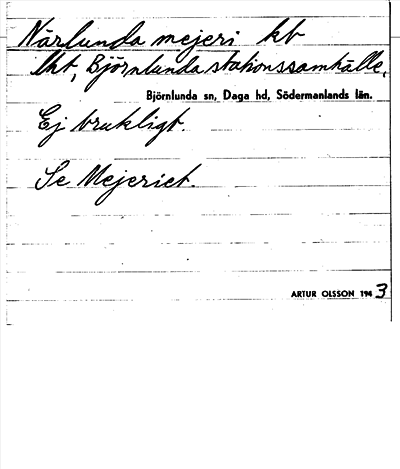 Närlunda mejeri kb
lht, Björnlunda stationssamhälle,
Björnlunda sn, Daga hd, Södermanlands län.
Ej brukligt.
Se Mejeriet.
ARTUR OLSSON 1943